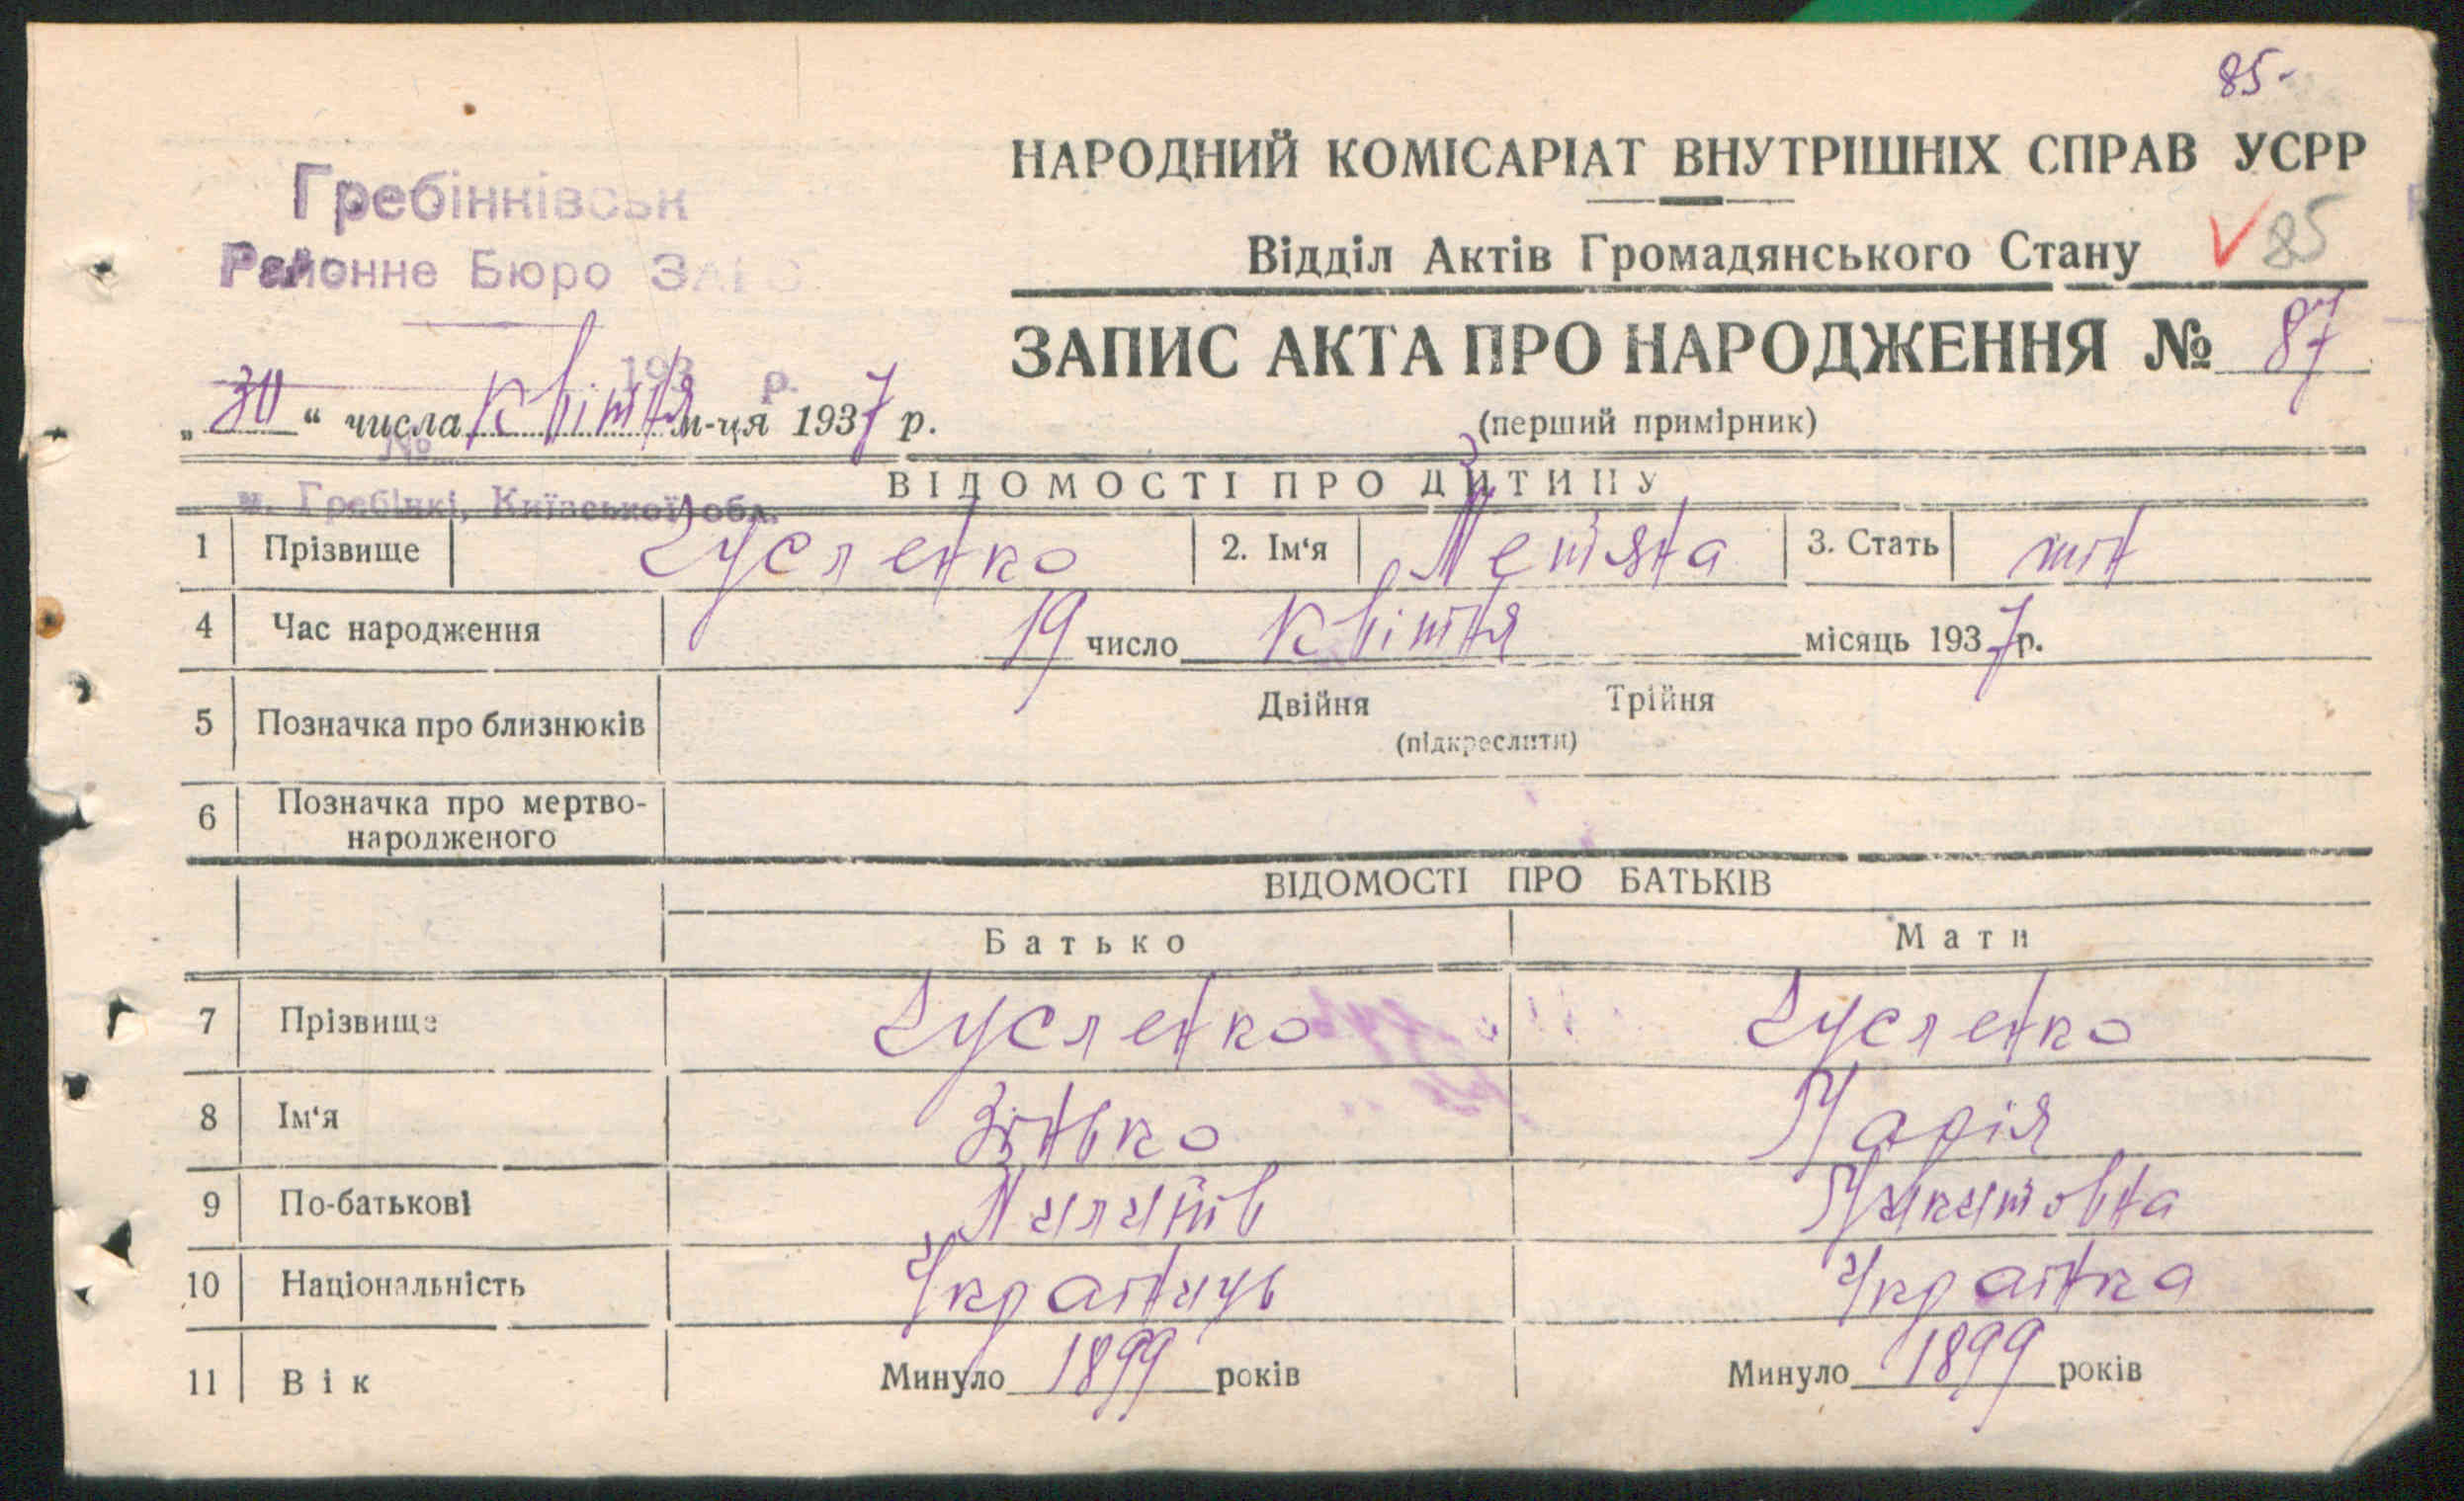 85-
НАРОДНИЙ КОМІСАРІАТ ВНУТРІШНІХ СПРАВ УСРР
Гребінківськ
Районне Бюро ЗАГС
Відділ Актів Громадянського Стану
85
ЗАПИС АКТА ПРО НАРОДЖЕННЯ № 87
193 р.
„30“ числа Квітня м-ця 1937 р.
(перший примірник)
№
м. Гребінкі, Київської обл.
ВІДОМОСТІ ПРО ДИТИНУ
1 Прізвище Гусленко 2. Ім‘я 3. Стать жін
4 Час народження 19 число Квітня місяць 1937 р.
5 Позначка про близнюків Двійня Трійня
(підкреслити)
6 Позначка про мертво-
народженого
ВІДОМОСТІ ПРО БАТЬКІВ
Батько Мати
7 Прізвище Гусленко Гусленко
8 Ім‘я Зінько Марія
9 По-батькові Микитовна
10 Національність Українць Українка
11 Вік Минуло 1899 років Минуло 1899 років